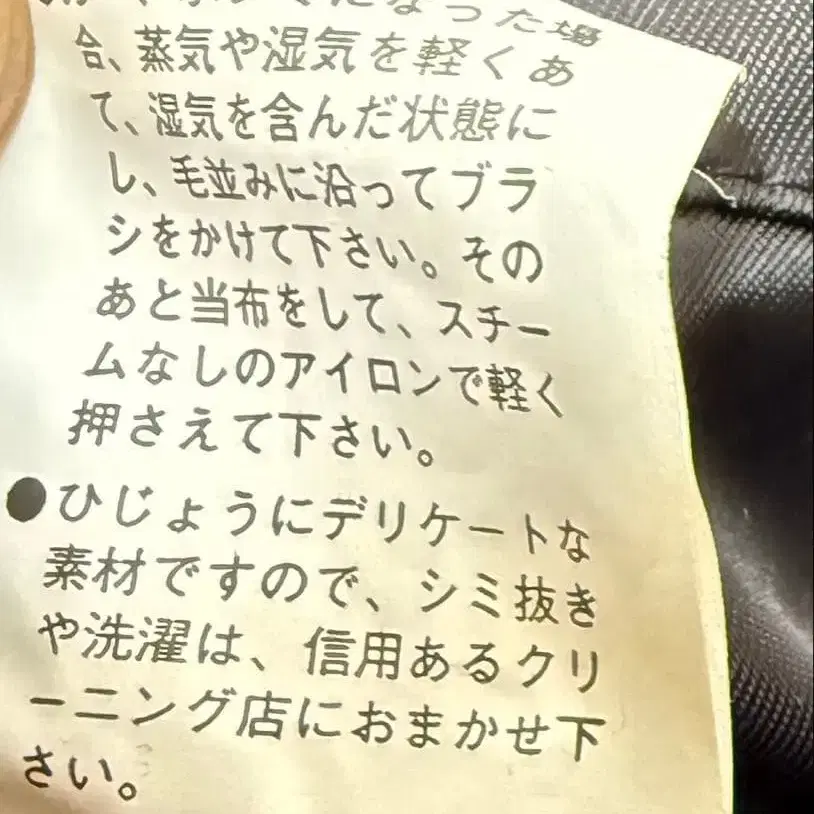 になった場
合、蒸気や湿気を軽くあ
て、湿気を含んだ状態に
し、毛並みに沿ってブラ
シをかけて下さい。その
あと当布をして、スチー
ムなしのアイロンで軽く
押さえて下さい。
●ひじょうにデリケートな
素材ですので、シミ抜き
や洗濯は、信用あるクリ
ーニング店におまかせ下
さい。